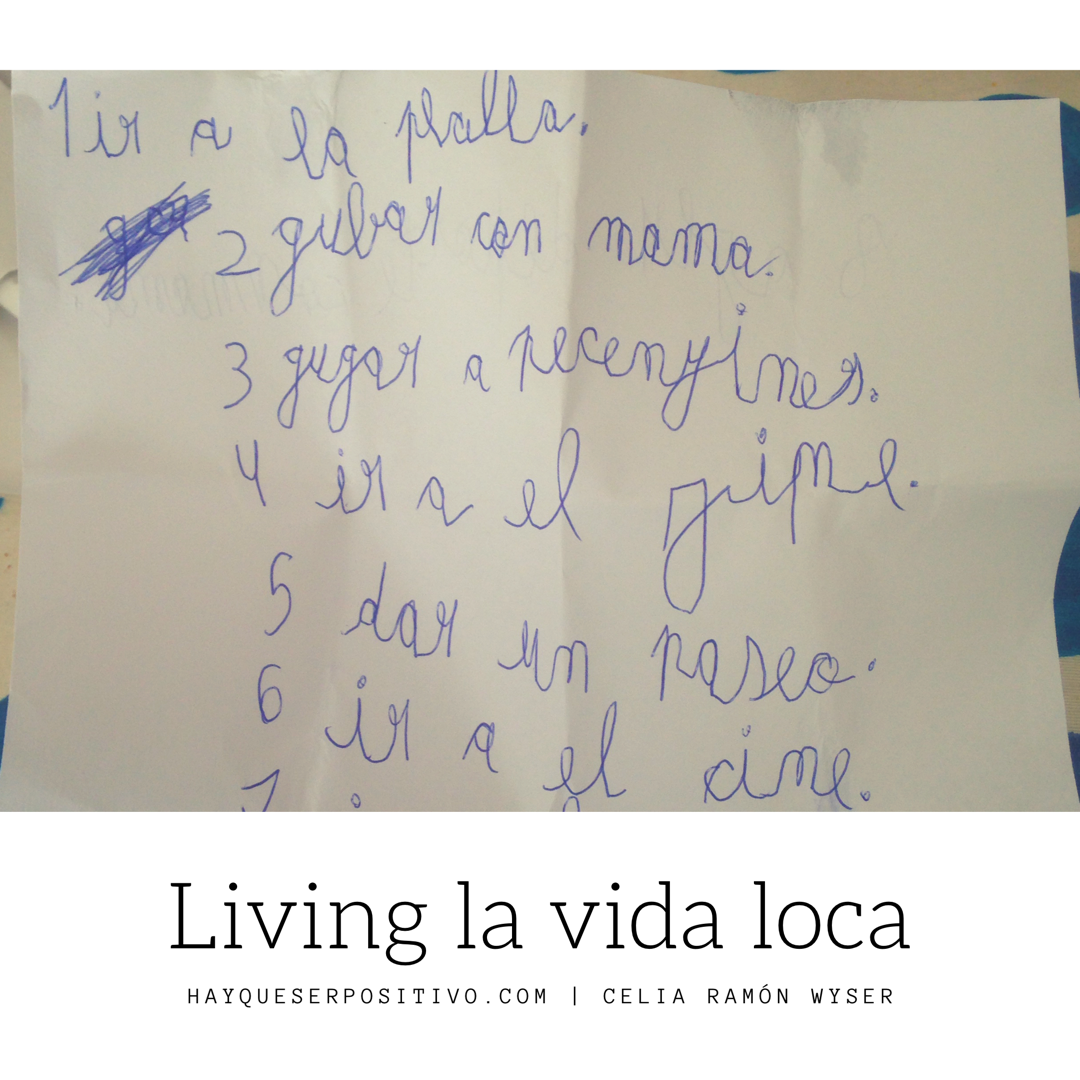 1 ir a la plalla.
2 gubar con mama.
3 gugar a pecenyines.
4 ir a el gipne.
5 dar un paseo.
6 ir a el cine.
7
Living la vida loca
HAYQUESERPOSITIVO.COM | CELIA RAMÓN WYSER